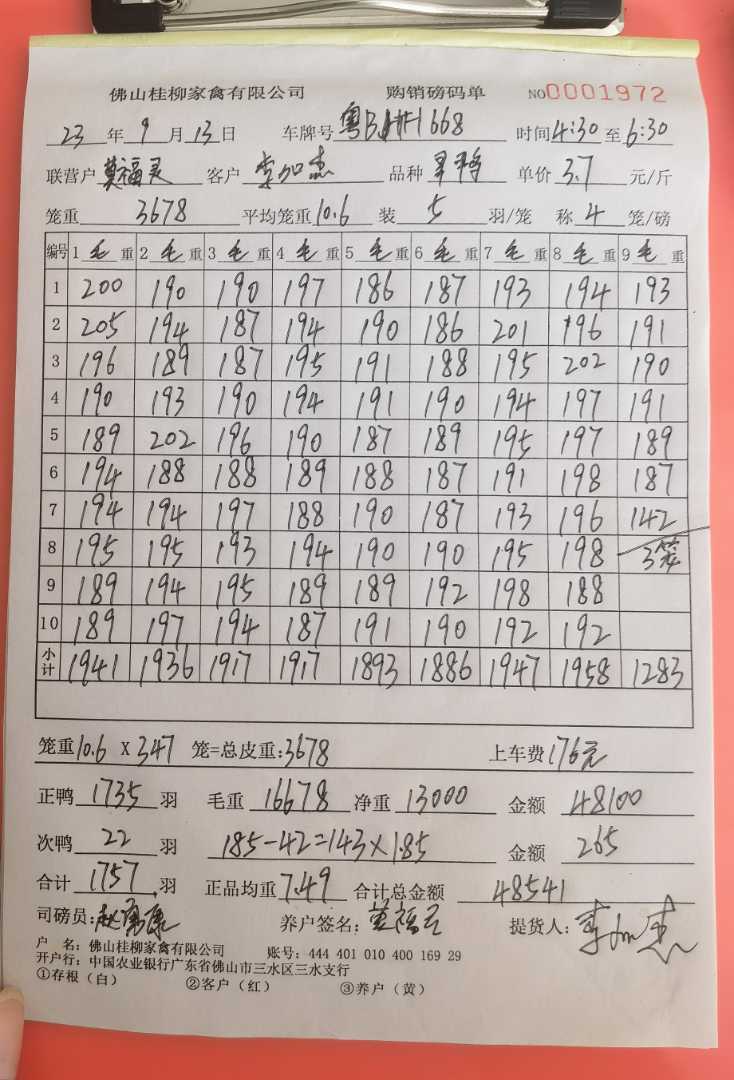 佛山桂柳家禽有限公司 购销磅码单 NO0001972
23年9月13日 车牌号 粤B 1668 时间4:30至6:30
联营户 莫福灵 客户 李加杰 品种 单价 3.7 元/斤
笼重 3678 平均笼重10.6 装 5 羽/笼 称 4 笼/磅
编号 1 毛 重 2 毛 重 3 毛 重 4 毛 重 5 毛 重 6 毛 重 7 毛 重 8 毛 重 9 毛 重
1 200 190 190 197 186 187 193 194 193
2 205 194 187 194 190 186 201 196 191
3 196 189 187 195 191 188 195 202 190
4 190 193 190 194 191 190 194 197 191
5 189 202 196 190 187 189 195 197 189
6 194 188 188 189 188 187 191 198 187
7 194 194 197 188 190 187 193 196 142
8 195 195 193 194 190 190 195 198 3笼
9 189 194 195 189 189 192 198 188
10 189 197 194 187 191 190 192 192
小计 1941 1936 1917 1917 1893 1886 1947 1958 1283
笼重10.6 X 347 笼=总皮重:3678 上车费176元
正鸭 1735 羽 毛重 16678 净重 13000 金额 48100
次鸭 22 羽 185-42=143×1.85 金额 265
合计 1757 羽 正品均重7.49 合计总金额 48541
司磅员: 赵富康 养户签名: 莫福灵 提货人: 李加杰
户 名: 佛山桂柳家禽有限公司 账号: 444 401 010 400 169 29
开户行: 中国农业银行广东省佛山市三水区三水支行
①存根(白) ②客户(红) ③养户(黄)